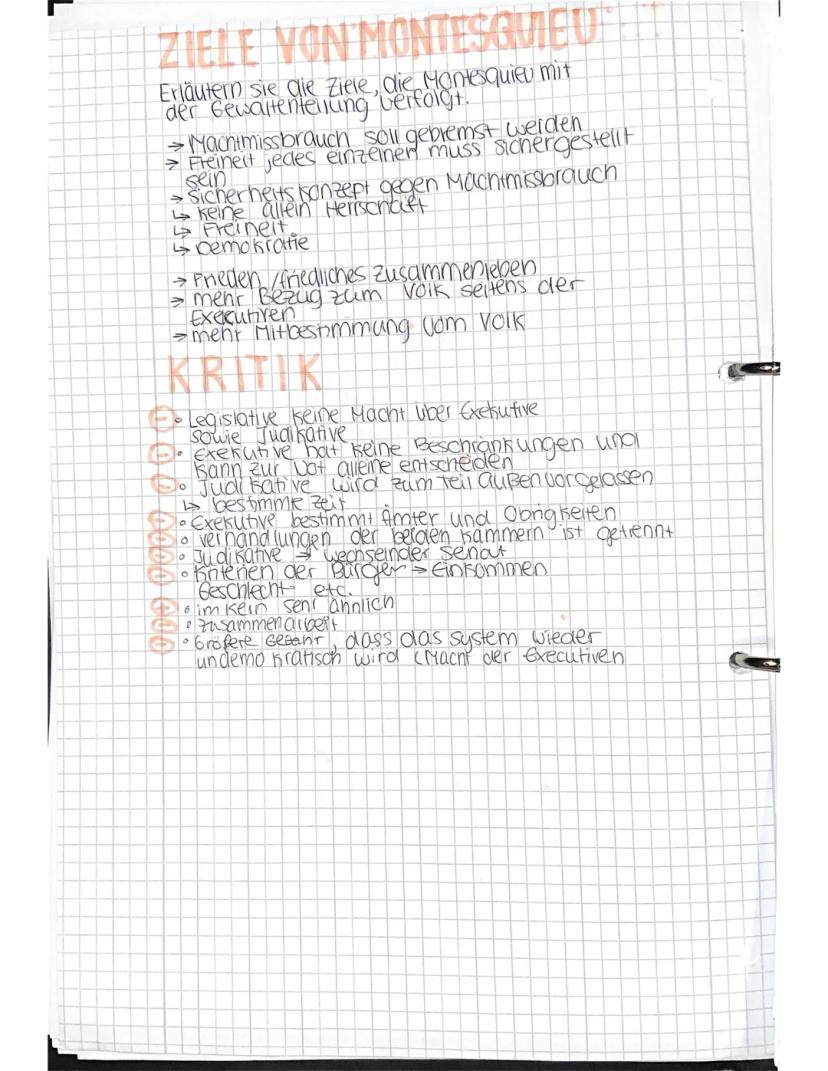 ZIELE VON MONTESQUIEU
Erläutern sie die Ziele, die Montesquieu mit
der Gewaltenteilung verfolgt.
→ Machtmissbrauch soll gebremst werden
→ Freiheit jedes einzelnen muss sichergestellt
sein
→ Sicherheitskonzept gegen Machtmissbrauch
↳ keine allein Herrschaft
↳ Freiheit
↳ Demokratie
→ Frieden / friedliches Zusammenleben
→ mehr Bezug zum Volk seitens der
Exekutiven
→ mehr Mitbestimmung vom Volk
KRITIK
⊖ • Legislative keine Macht über Exekutive
sowie Judikative
⊖ • exekutive hat keine Beschränkungen und
kann zur Not alleine entscheiden
⊖ • Judikative wird zum teil außen vorgelassen
↳ bestimmte Zeit
⊕ • Exekutive bestimmt Ämter und Obrigkeiten
⊕ • verhandlungen der beiden Kammern ist getrennt
⊕ • Judikative → wechselnder Senat
⊖ • Kriterien der Bürger → Einkommen
Geschlecht etc.
⊕ • im Kern sehr ähnlich
⊕ • Zusammenarbeit
⊖ • Größere Gefahr, dass das System wieder
undemokratisch wird (Macht der Executiven